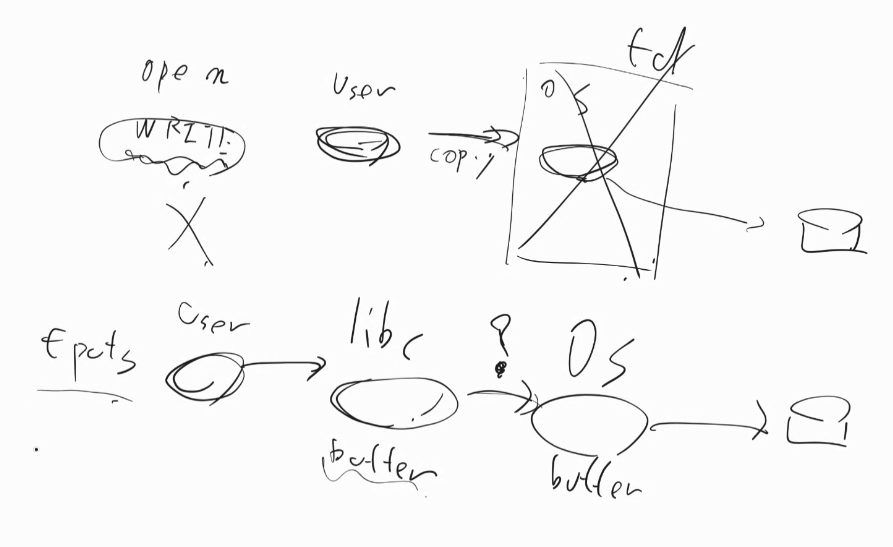 open
WRITE
User
copy
fd
OS
fputs
User
libc
buffer
?
OS
buffer